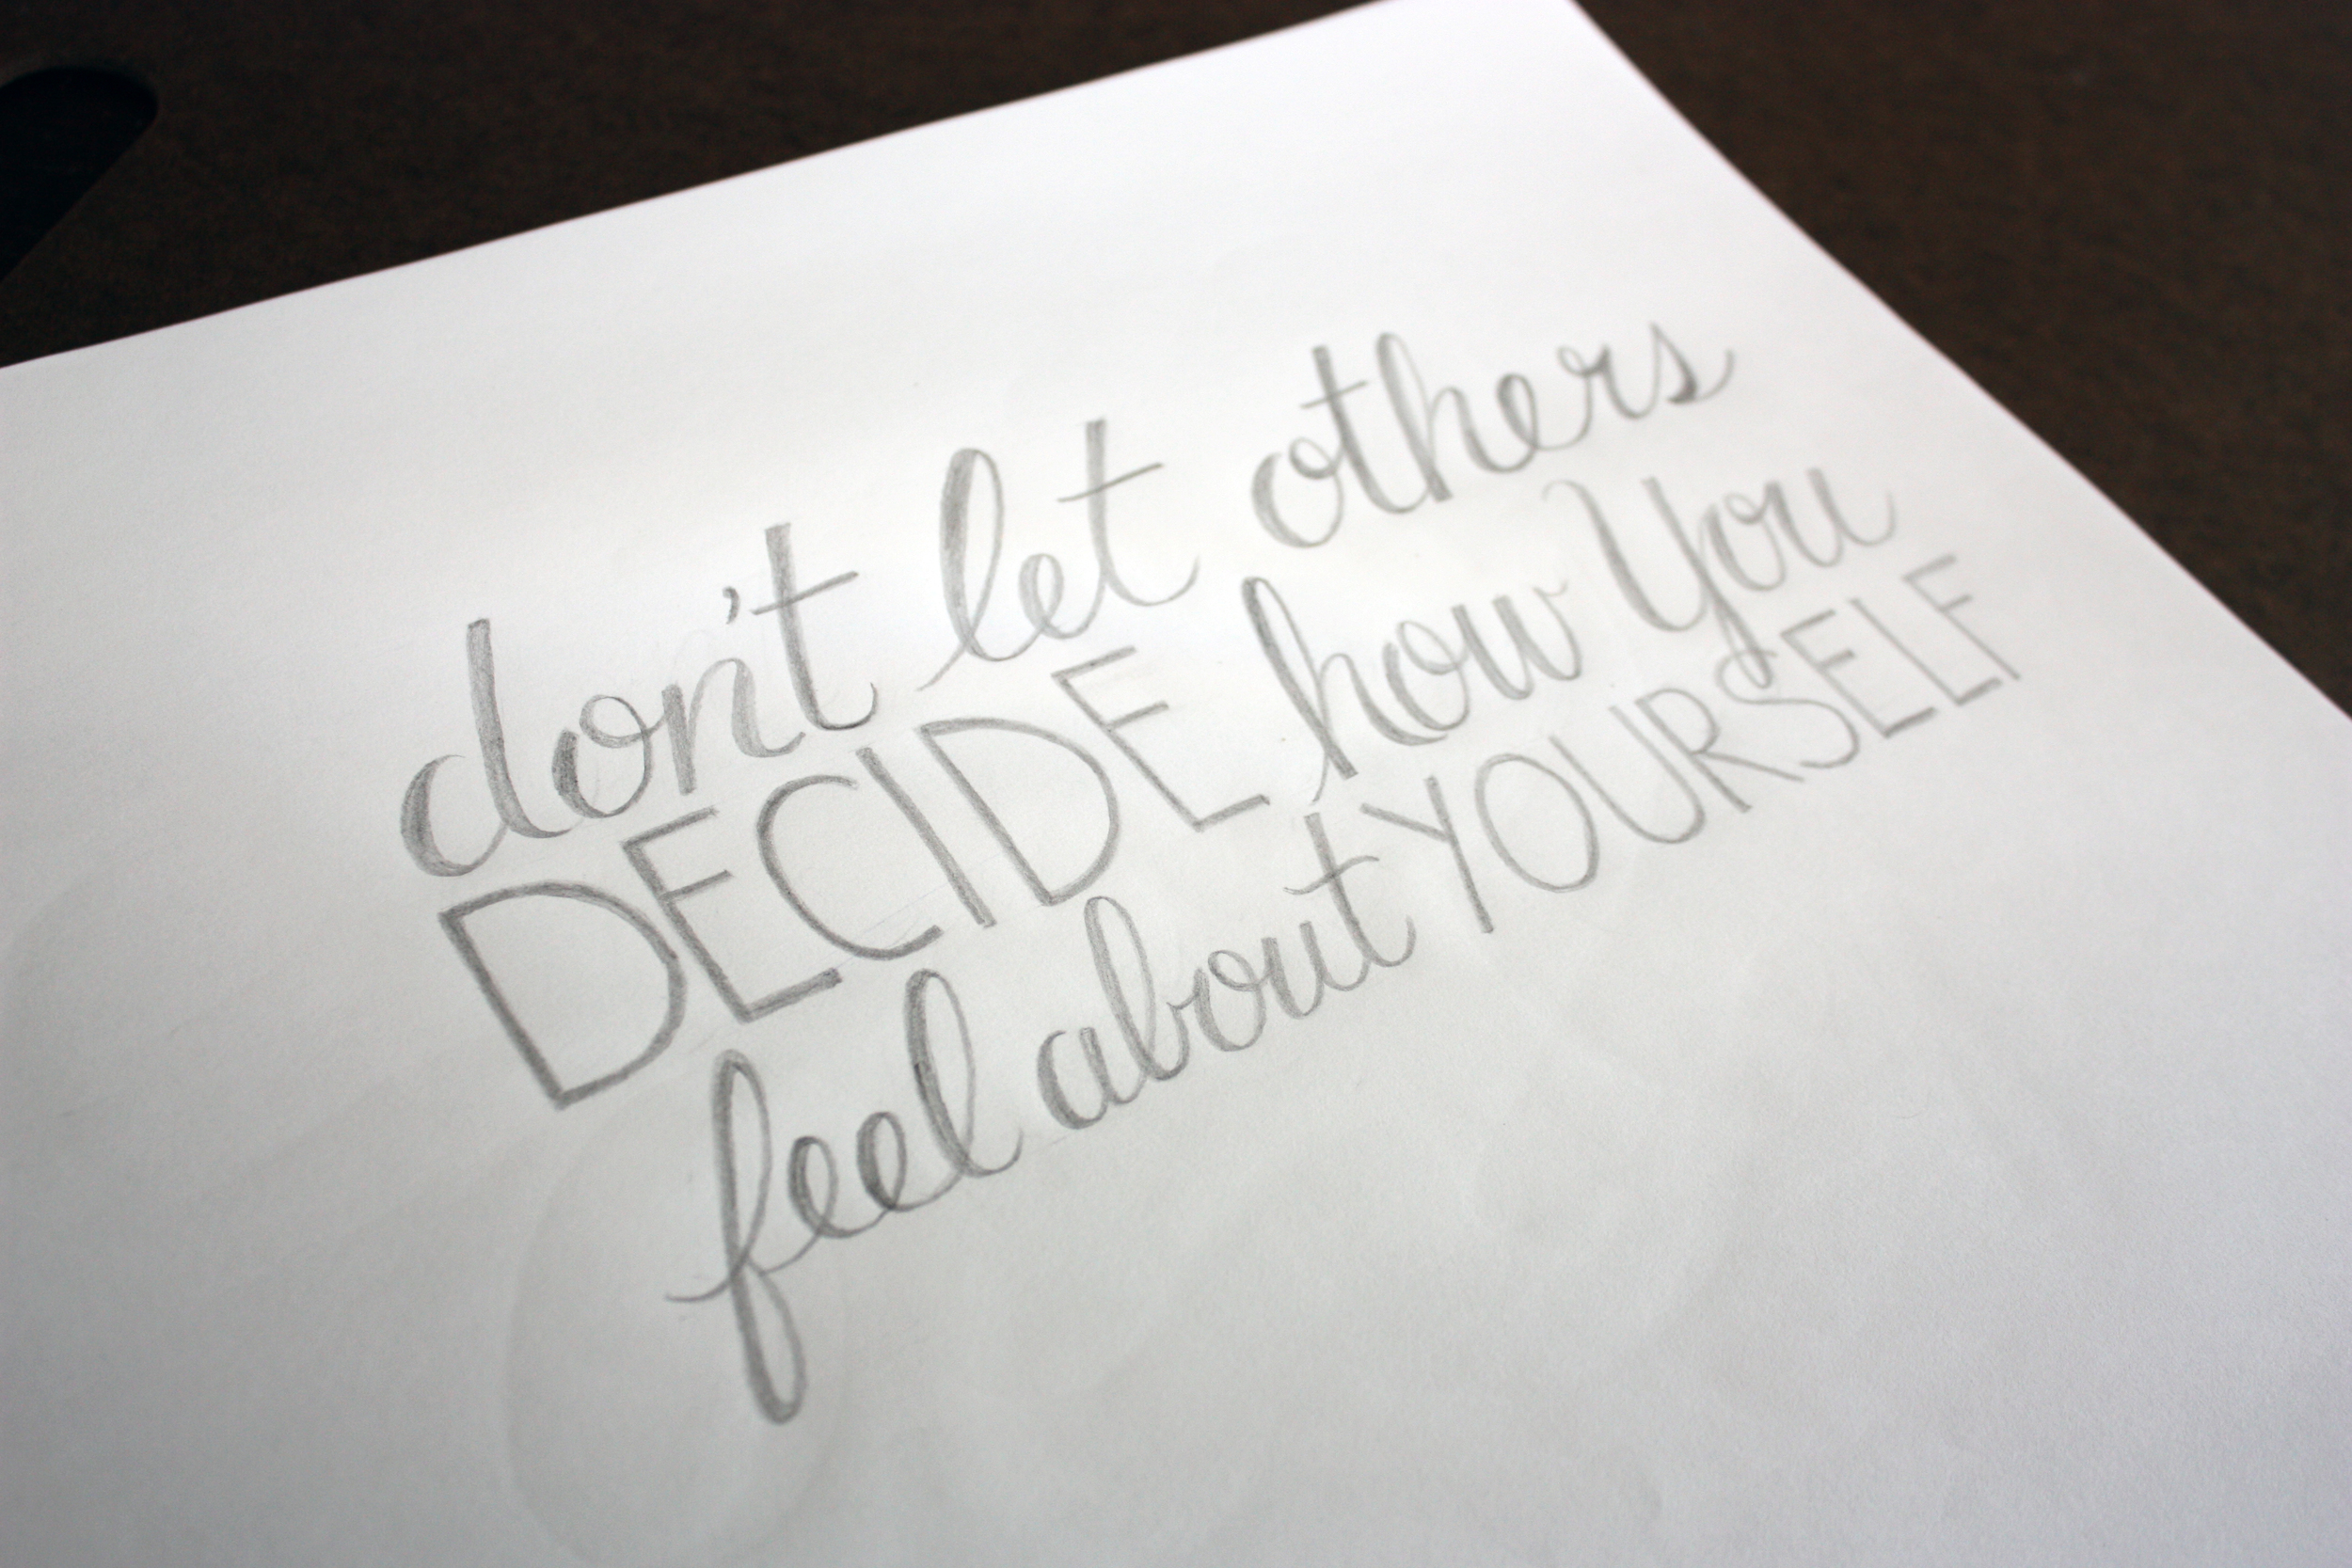 don't let others
DECIDE how you
feel about YOURSELF